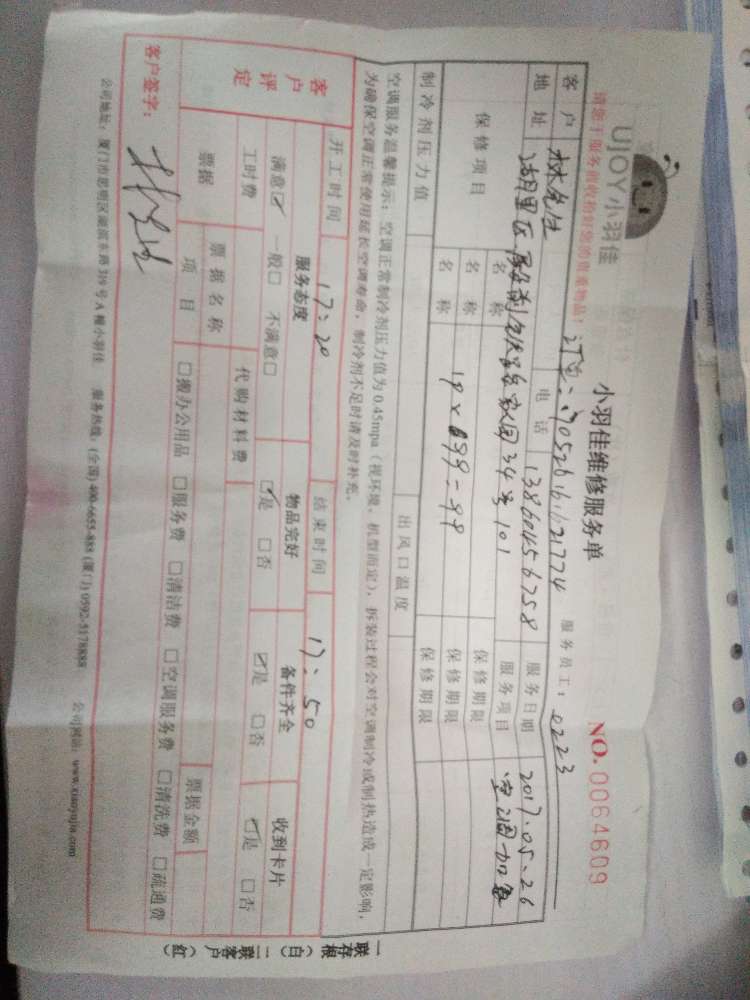 UJOY小羽佳
小羽佳维修服务单
NO.0064609
请您于服务前收拾好您的贵重物品！
服务员工：0223
客户 林先生 电话 13860456758 服务日期 2017.05.26
地址 湖里区 34号101 服务项目 空调加氟
保修项目 名称 保修期限
名称 保修期限
名称 保修期限
制冷剂压力值 出风口温度
空调服务温馨提示：空调正常制冷剂压力值为0.45mpa（视环境、机型而定），拆装过程会对空调制冷或制热造成一定影响，
为确保空调正常使用延长空调寿命，制冷剂不足时请及时补充。
开工时间 17:20 结束时间 17:50
客户评定 服务态度 物品完好 备件齐全 收到卡片
满意☑ 一般□ 不满意□ ☑是 □否 ☑是 □否 ☑是 □否
工时费 代购材料费
票据 票据名称 票据金额
项目 □搬办公用品 □服务费 □清洁费 □空调服务费 □清洗费 □疏通费
客户签字：
公司地址：厦门市思明区湖滨东路319号A幢小羽佳 服务热线：(全国)400-6655-888 (厦门)0592-5178888 公司网站：www.xiaoyujia.com
一联存根（白） 二联客户（红）